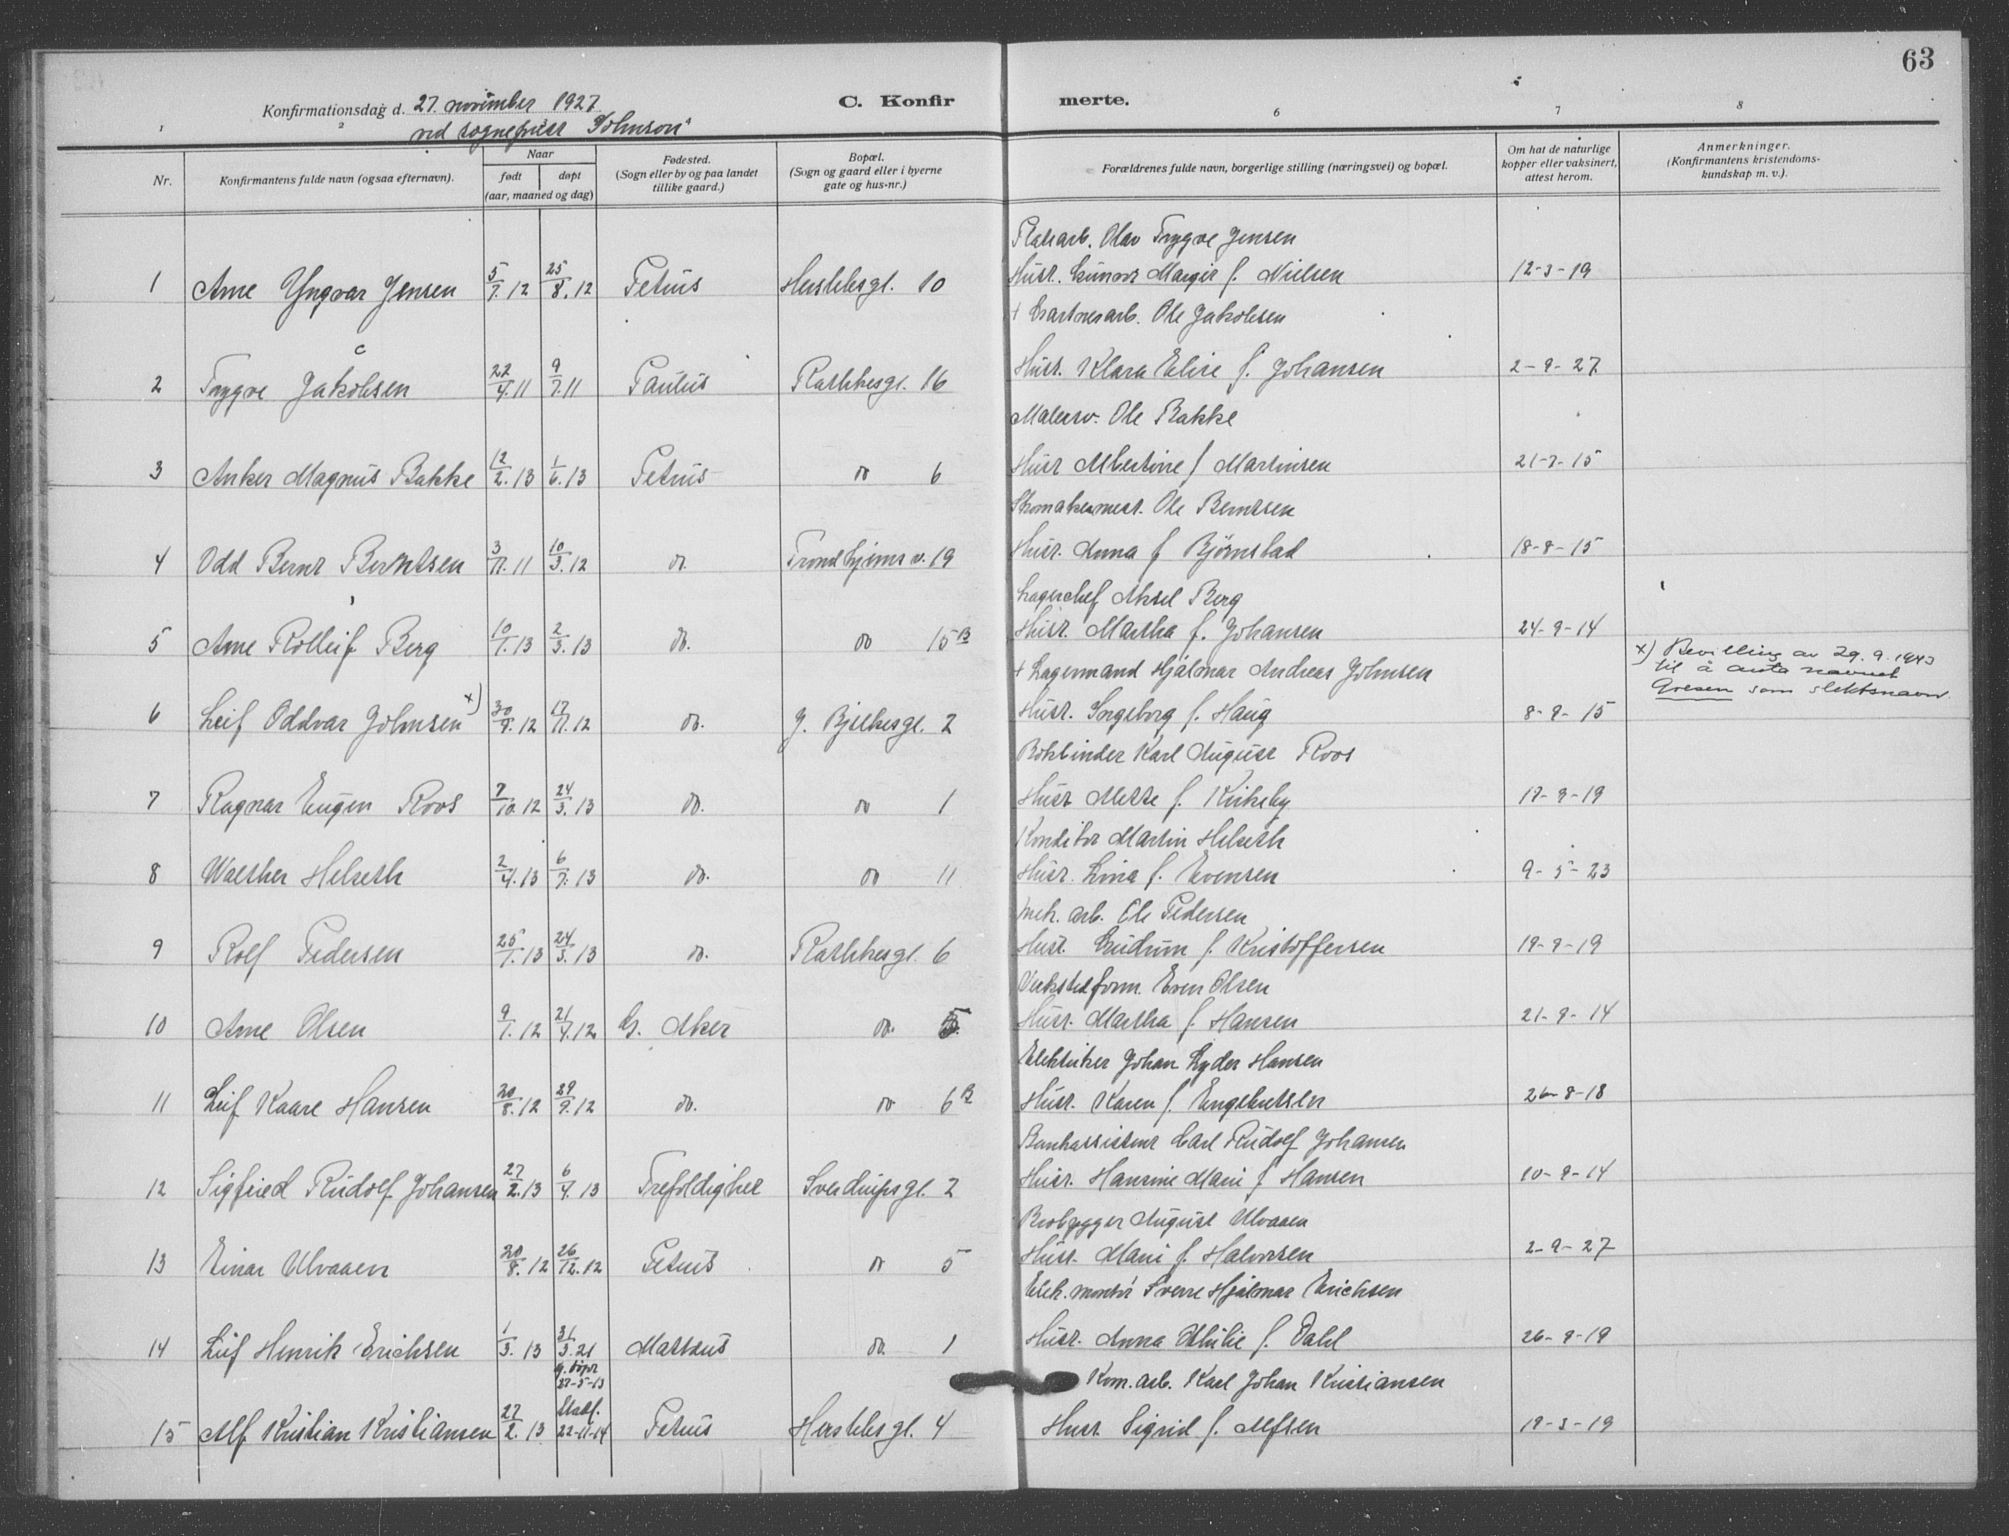 63
Konfirmationsdag d. 27. november 1927 C. Konfirmerte.
ved sogneprest Johnson
1 2 6 7 8
Nr. Konfirmantens fulde navn (ogsaa efternavn). Naar født døpt (aar, maaned og dag) Fødested. (Sogn eller by og paa landet tillike gaard.) Bopæl. (Sogn og gaard eller i byerne gate og hus-nr.) Forældrenes fulde navn, borgerlige stilling (næringsvei) og bopæl. Om hat de naturlige kopper eller vaksinert, attest herom. Anmerkninger. (Konfirmantens kristendoms-kundskap m. v.).
Olav Trygve Jensen
1 Arne Yngvar Jensen 5/7. 12 25/8. 12 Petrus Herslebsgt. 10 Hust. Gunvor Margit f. Nielsen 12-3-19
+ Gartnerarb. Ole Jakobsen
2 Trygve Jakobsen 22/4. 11 9/7. 11 Paulus Rathkesgt. 16 Hust. Klara Elise f. Johansen 2-9-27
Malersv. Ole Bakke
3 Anker Magnus Bakke 12/2. 13 1/6. 13 Petrus do 6 Hust Albertine f Martinsen 21-9-15
Skomakermest. Ole Berntsen
4 Odd Bernt Berntsen 3/11. 11 10/3. 12 do. Trondhjems v. 19 Hust. Anna f Bjørnstad 18-8-15
Lagerchef Aksel Berg
5 Arne Rolleif Berg 10/1. 13 2/3. 13 do. do 15B Hust. Martha f. Johansen 24-9-14
+ Lagermand Hjalmar Andreas Johnsen
x) Bevilling av 29.9.1943
til å anta navnet
Gresen som slektsnavn.
6 Leif Oddvar Johnsen x) 30/9. 12 17/11. 12 do. J. Bjelkesgt. 2 Hust. Ingeborg f. Haug 8-9-15
Bokbinder Karl August Roos
7 Ragnar Eugen Roos 7/10. 12 24/3. 13 do. do 1 Hust Mette f. Kirkeby 19-9-19
Konditor Martin Helseth
8 Walther Helseth 2/4. 13 6/7. 13 do. do 11 Hust. Lina f. Evensen 9-5-23
Mek. arb. Ole Pedersen
9 Rolf Pedersen 25/1. 13 24/3. 13 do. Rathkesgt. 6 Hust. Gudrun f. Kristoffersen 19-9-19
Verkstedform. Even Olsen
10 Arne Olsen 9/1. 12 21/4. 12 G. Aker do. 5 Hust. Martha f. Hansen 21-9-14
Elektriker Johan Lyder Hansen
11 Leif Kaare Hansen 20/8. 12 29/9. 12 do. do 6B Hust. Karen f. Engebretsen 26-8-18
Bankassistent Carl Rudolf Johansen
12 Sigfried Rudolf Johansen 27/2. 13 6/4. 13 Trefoldighet Sverdrupsgt. 2 Hust. Hansine Marie f Hansen 10-9-14
Brobygger August Ulvaaen
13 Einar Ulvaaen 20/8. 12 26/12. 12 Petrus do 5 Hust. Marie f. Halvorsen 2-9-27
Elek. montør Sverre Hjalmar Erichsen
14 Leif Henrik Erichsen 1/3. 13 31/3. 21 Mattæus do. 1 Hust. Anna f. Dahl 26-9-19
27-5-13
Kom. arb. Karl Johan Kristiansen
15 Alf Kristian Kristiansen 27/2. 13 22-11-14 Petrus Herslebsgt. 4 Hust Sigrid f. Alfsen 19-3-19